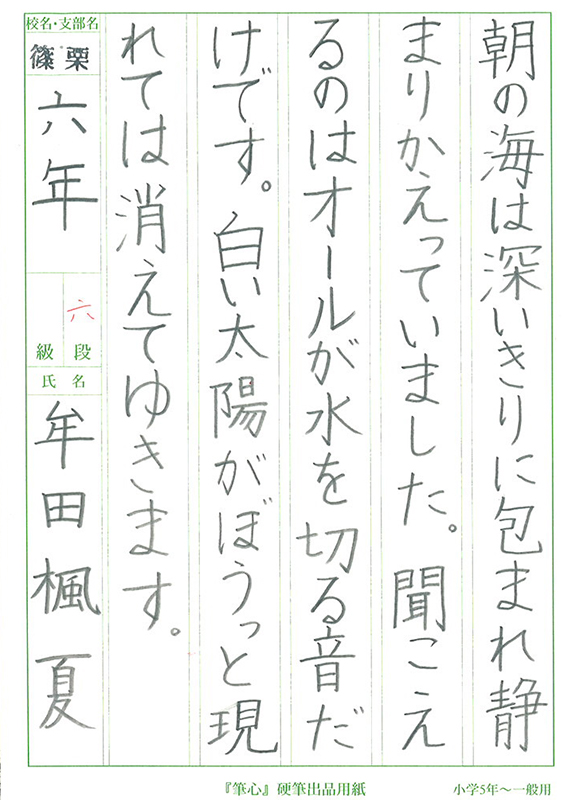 朝の海は深いきりに包まれ静
まりかえっていました。聞こえ
るのはオールが水を切る音だ
けです。白い太陽がぼうっと現
れては消えてゆきます。
校名・支部名
篠栗
六年
六
段
級
氏名
牟田楓夏
『筆心』硬筆出品用紙
小学5年〜一般用